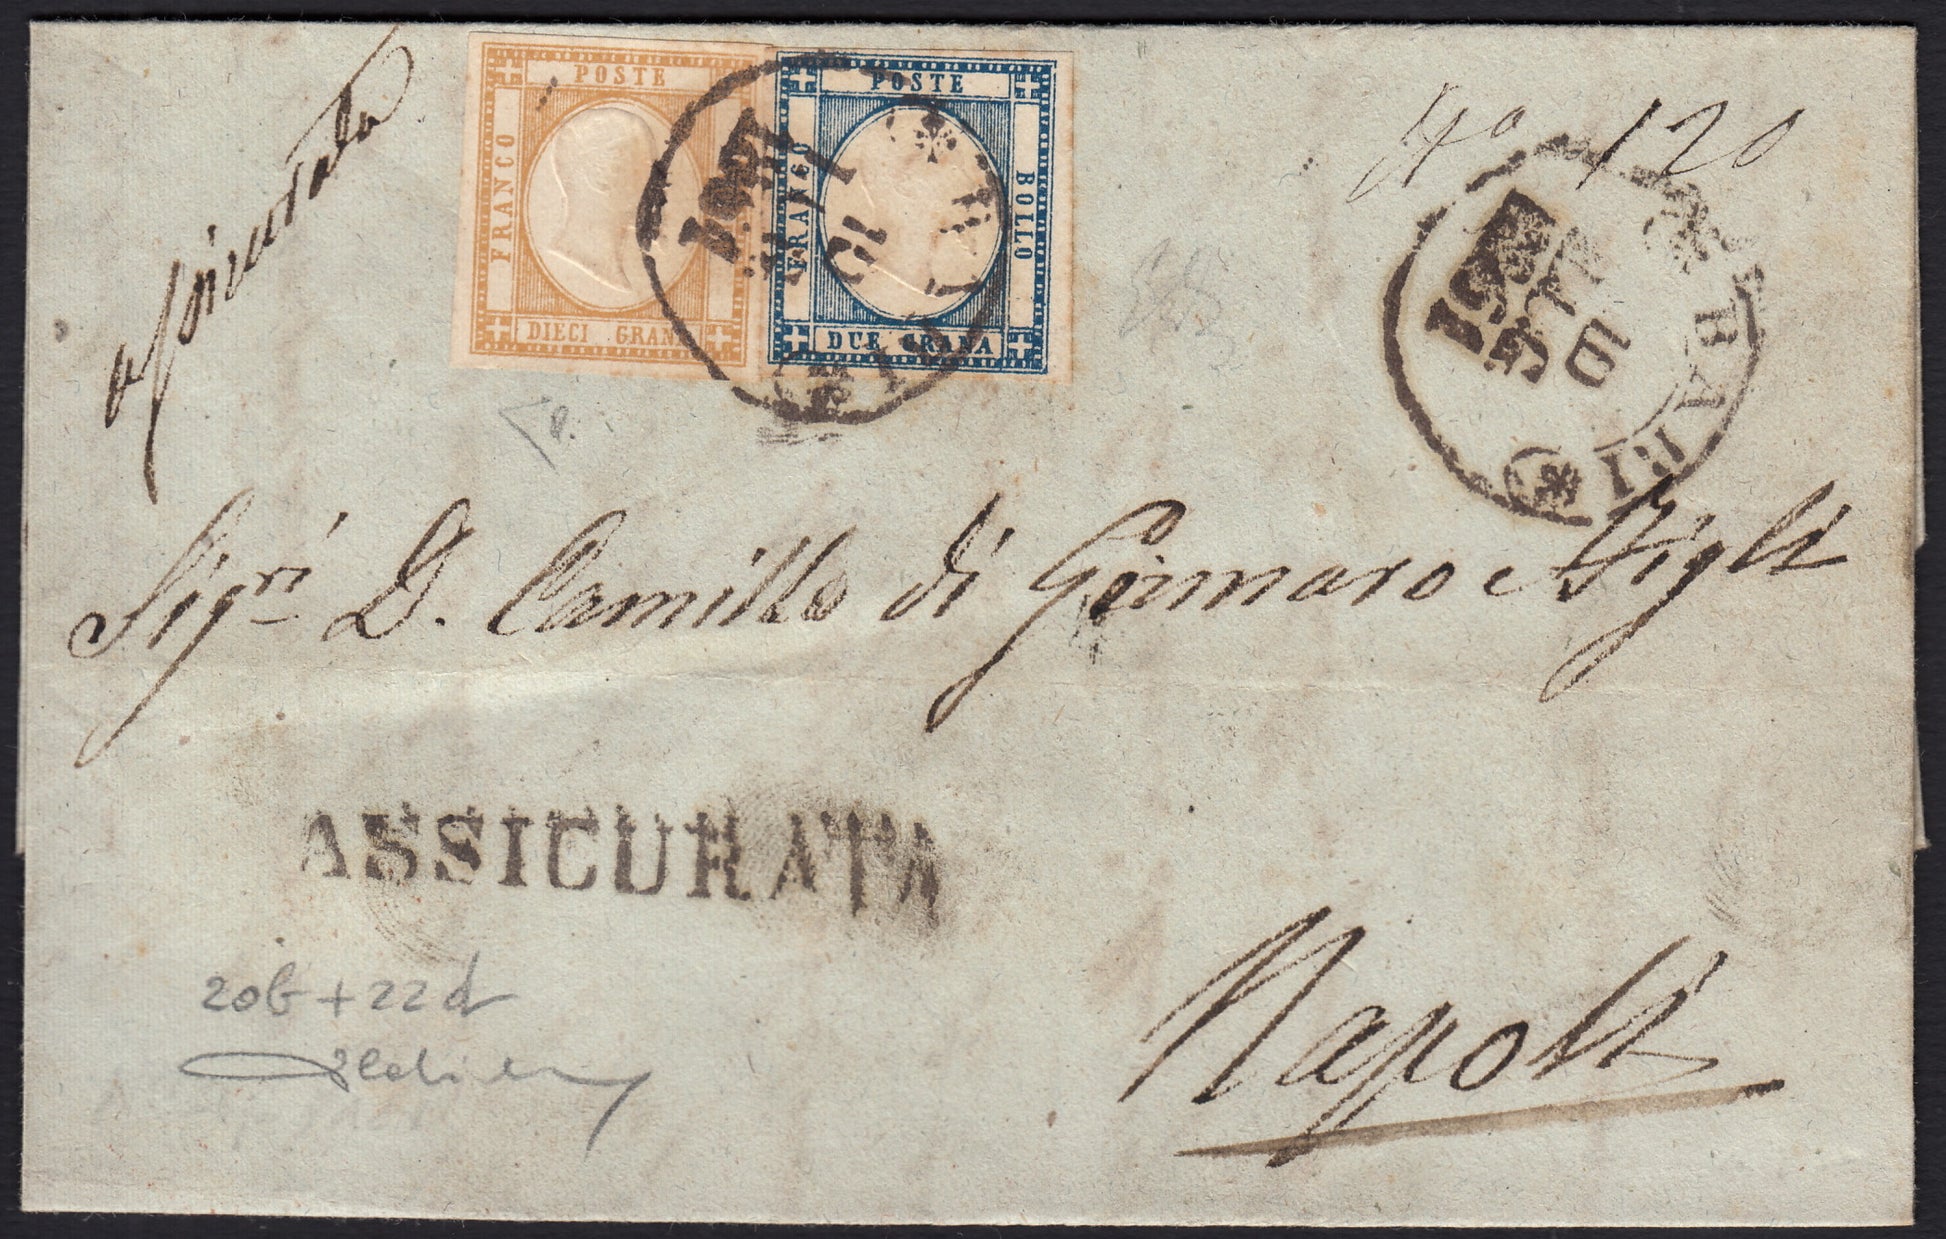 assicurata
POSTE
FRANCO
DIECI GRANA
POSTE
FRANCO
BOLLO
DUE GRANA
1861
15
N° 120
BARI
1861
Sigri D. Camillo di Gennaro e Figli
ASSICURATA
Napoli
20b + 22d